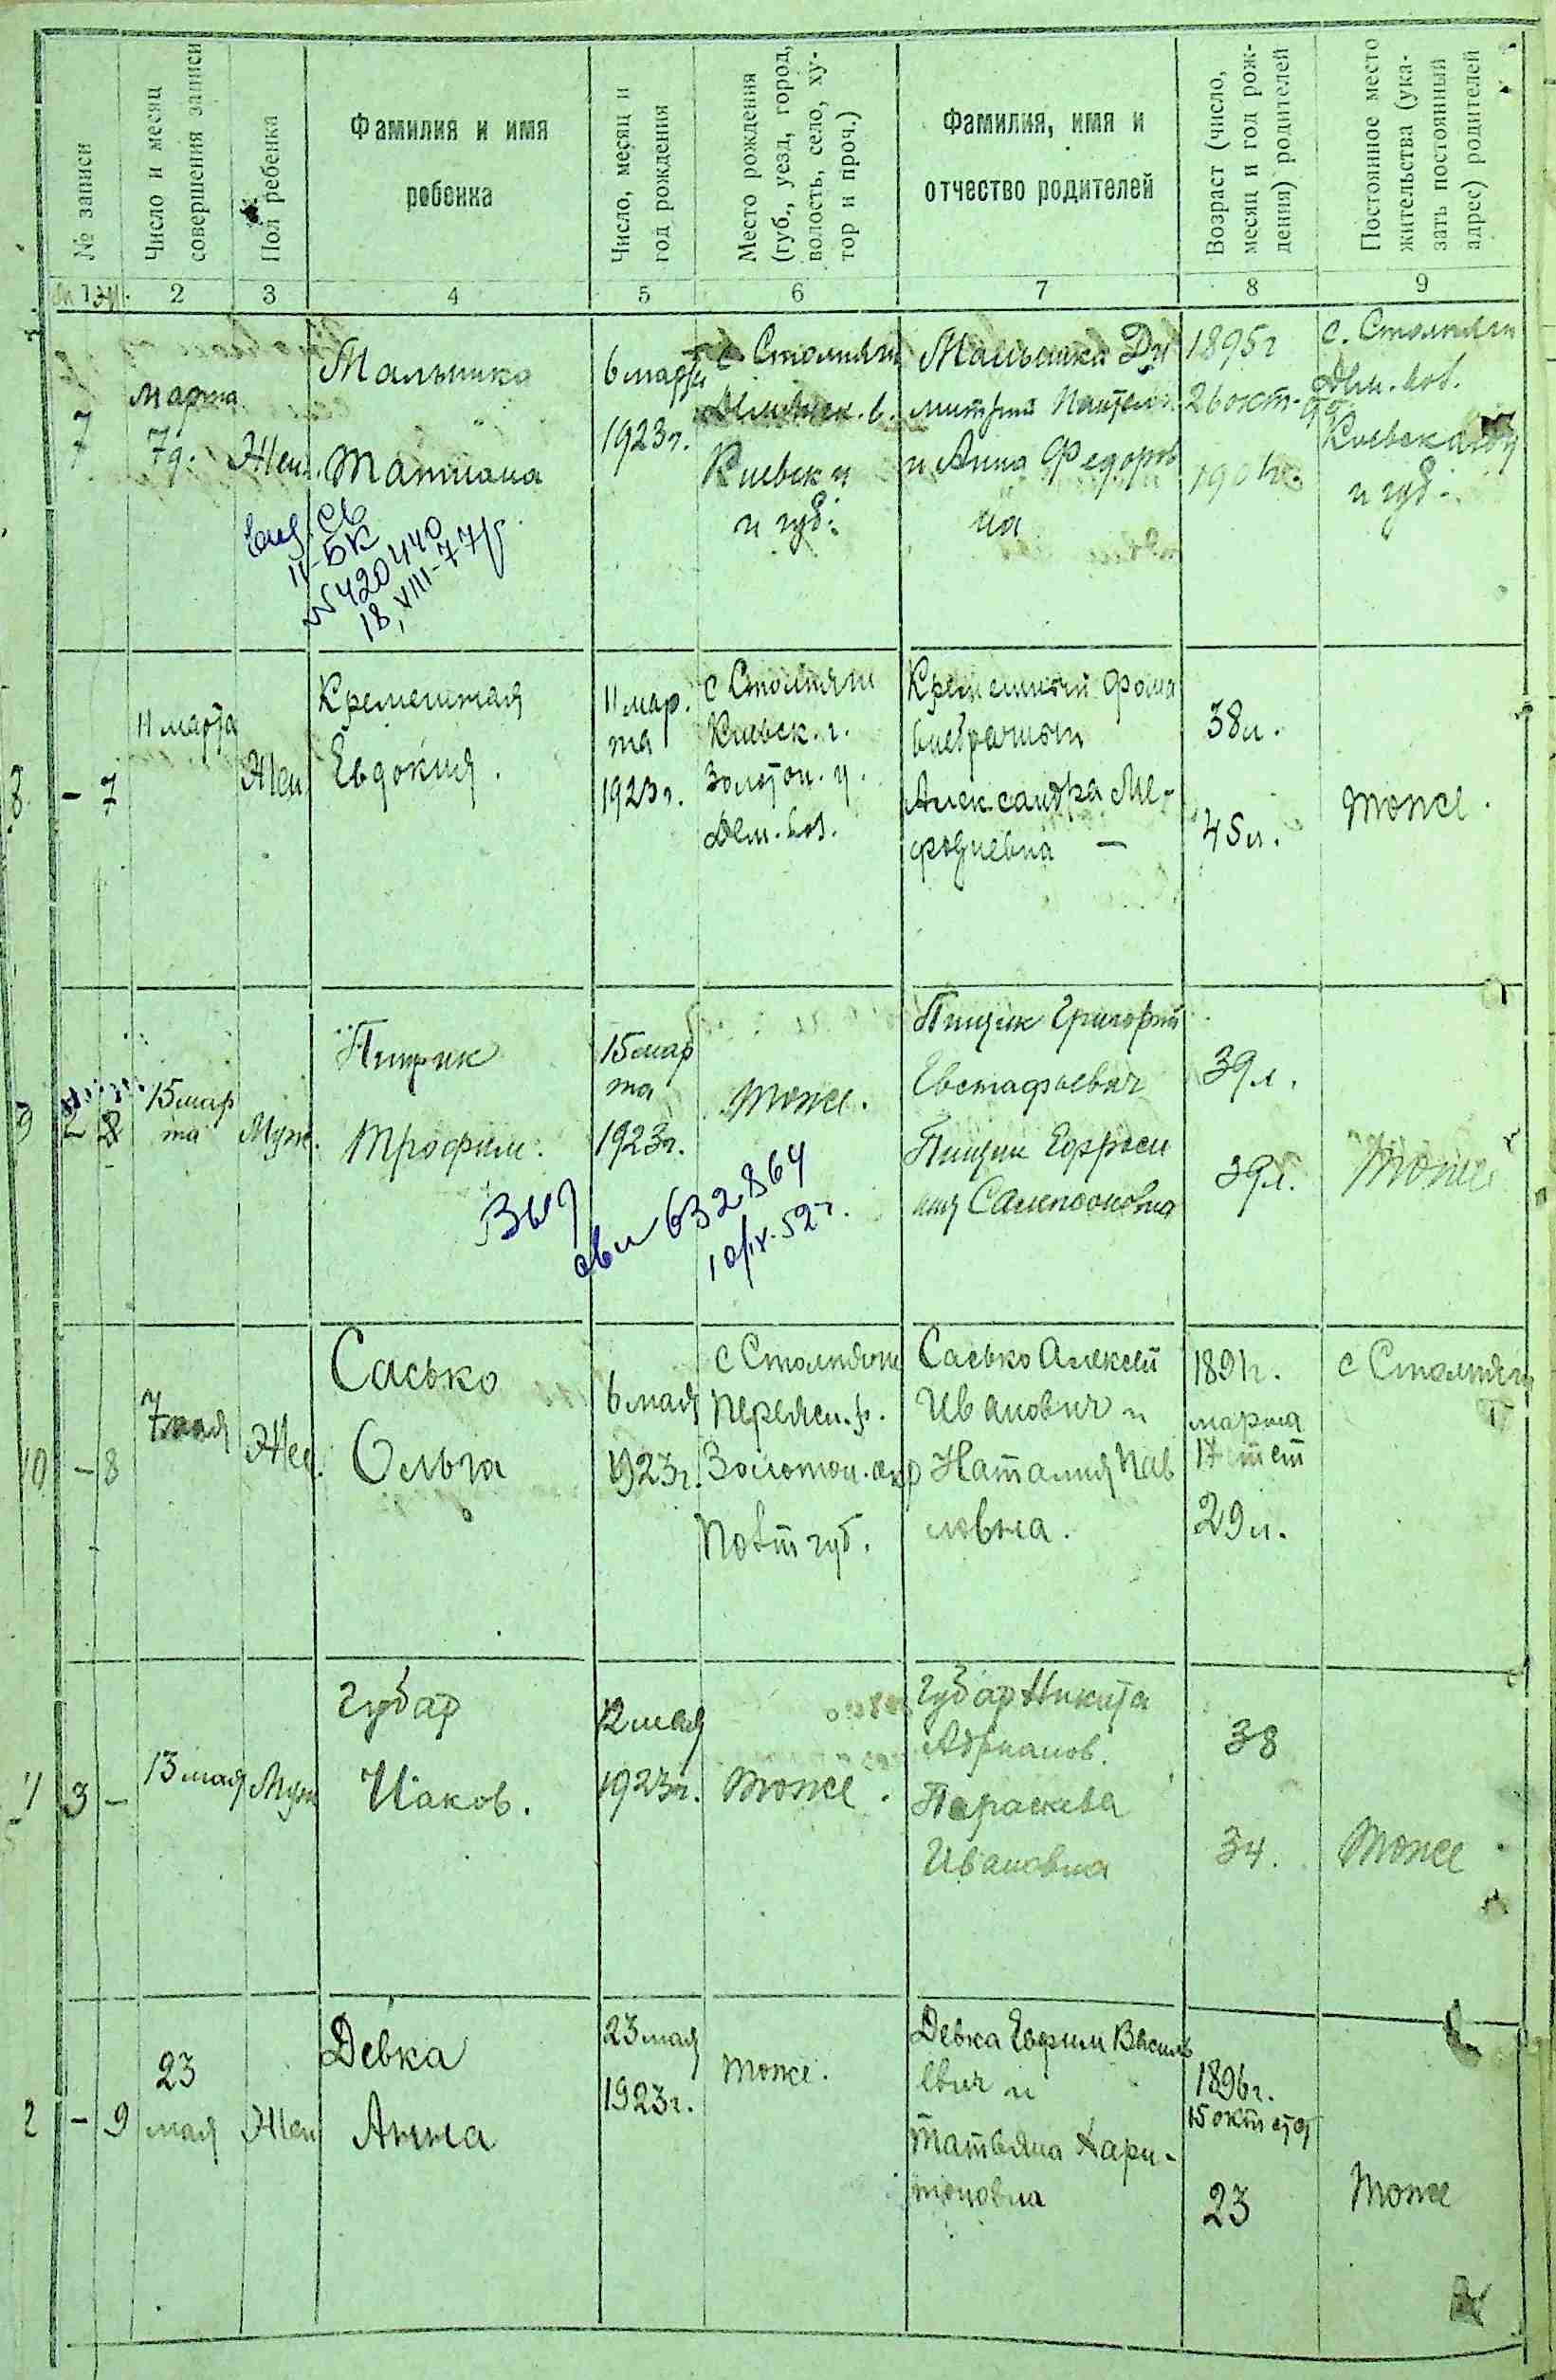 № записи
Число и месяц
совершения записи
Пол ребенка
Фамилия и имя
ребенка
Число, месяц и
год рождения
Место рождения
(губ., уезд, город,
волость, село, ху-
тор и проч.)
Фамилия, имя и
отчество родителей
Возраст (число,
месяц и год рож-
дения) родителей
Постоянное место
жительства (ука-
зать постоянный
адрес) родителей
1 2 3 4 5 6 7 8 9
7
марта
7д.
Жен.
Малышко
Татиана
6 марта
1923г.
с Столпяги
Киевск
и губ.
Малышка Ди
митрий Пантел.
и Анна Федоров
на
1895г
26 окт.
с. Столпяги
Дем. вол.
и губ.
№420440
18, VIII-77г.
8
- 7
11 марта
Жен
Кремешная
Евдокия.
11 мар.
та
1923г.
с Столпяги
Киевск. г.
Золотон. у.
Дем. вол.
Кремешный Фома
Александра Ме-
фодиевна —
38л.
45л.
тоже.
9
2
15 мар
та
Муж.
Пищик
Трофим.
15 мар
та
1923г.
тоже.
Пищик Григорий
Евстафиевич
Пищик Ефроси
ния Сампсоновна
39л.
39л.
тоже
Выд
свид 632864
10/IX-52г.
10
- 8
7 мая
Жен.
Сасько
Ольга
6 мая
1923г.
с Столпяги
Переясл. р.
Золотон. окр
Полт губ.
Сасько Алексей
Иванович и
Наталия Пав
ловна.
1891г.
марта
17
29л.
с Столпяги
3 -
13 мая
Муж
Губар
Иаков.
12 мая
1923г.
тоже.
Губар Никита
Адрианов.
Параскева
Ивановна
38
34.
тоже
2
- 9
23
мая
Жен
Девка
Анна
23 мая
1923г.
тоже.
Девка Евфим Василь
евич и
Татьяна Хари-
тоновна
1896г.
15 окт
23
тоже